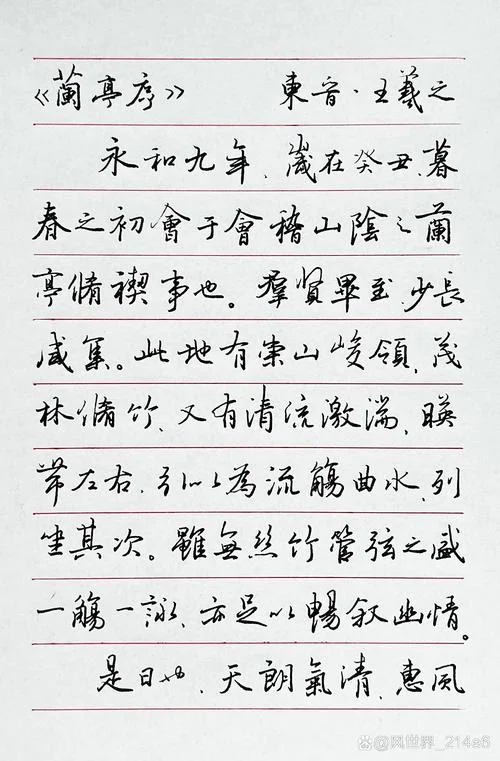 《蘭亭序》 東晉·王羲之
永和九年,歲在癸丑,暮
春之初會于會稽山陰之蘭
亭脩禊事也。羣賢畢至,少長
咸集。此地有崇山峻領,茂
林脩竹,又有清流激湍,暎
帶左右,引以為流觴曲水,列
坐其次。雖無絲竹管弦之盛
一觴一詠,亦足以暢敘幽情。
是日也,天朗氣清,惠風
@风世界_214s6